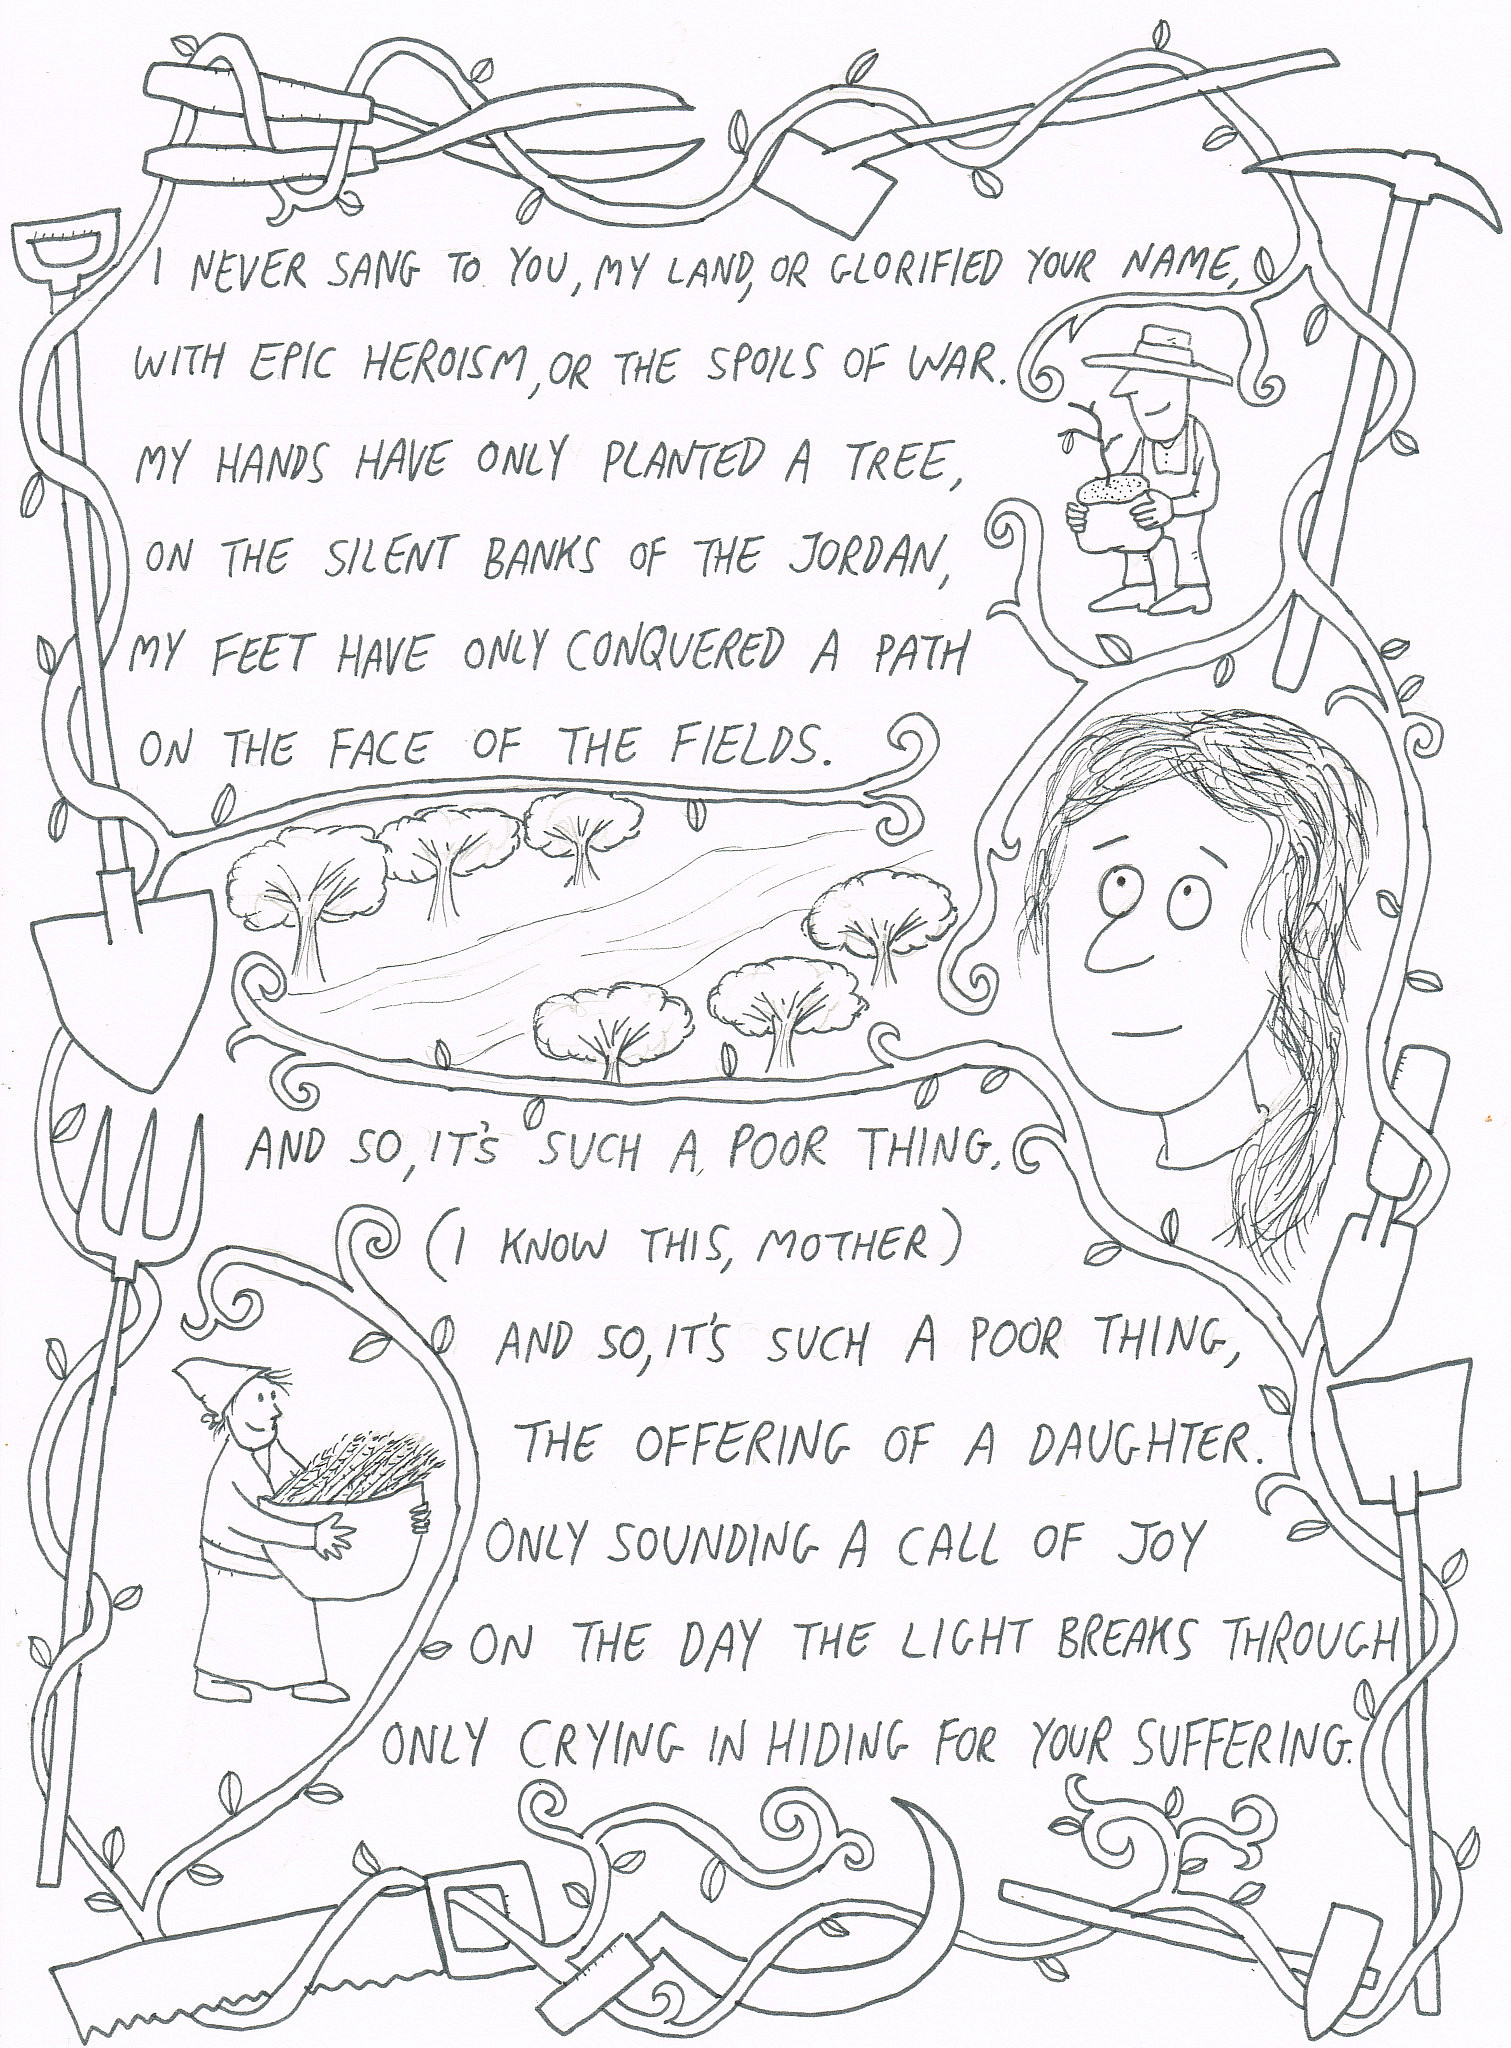 I NEVER SANG TO YOU, MY LAND, OR GLORIFIED YOUR NAME,
WITH EPIC HEROISM, OR THE SPOILS OF WAR.
MY HANDS HAVE ONLY PLANTED A TREE,
ON THE SILENT BANKS OF THE JORDAN,
MY FEET HAVE ONLY CONQUERED A PATH
ON THE FACE OF THE FIELDS.
AND SO, IT'S SUCH A POOR THING.
(I KNOW THIS, MOTHER)
AND SO, IT'S SUCH A POOR THING,
THE OFFERING OF A DAUGHTER.
ONLY SOUNDING A CALL OF JOY
ON THE DAY THE LIGHT BREAKS THROUGH
ONLY CRYING IN HIDING FOR YOUR SUFFERING.